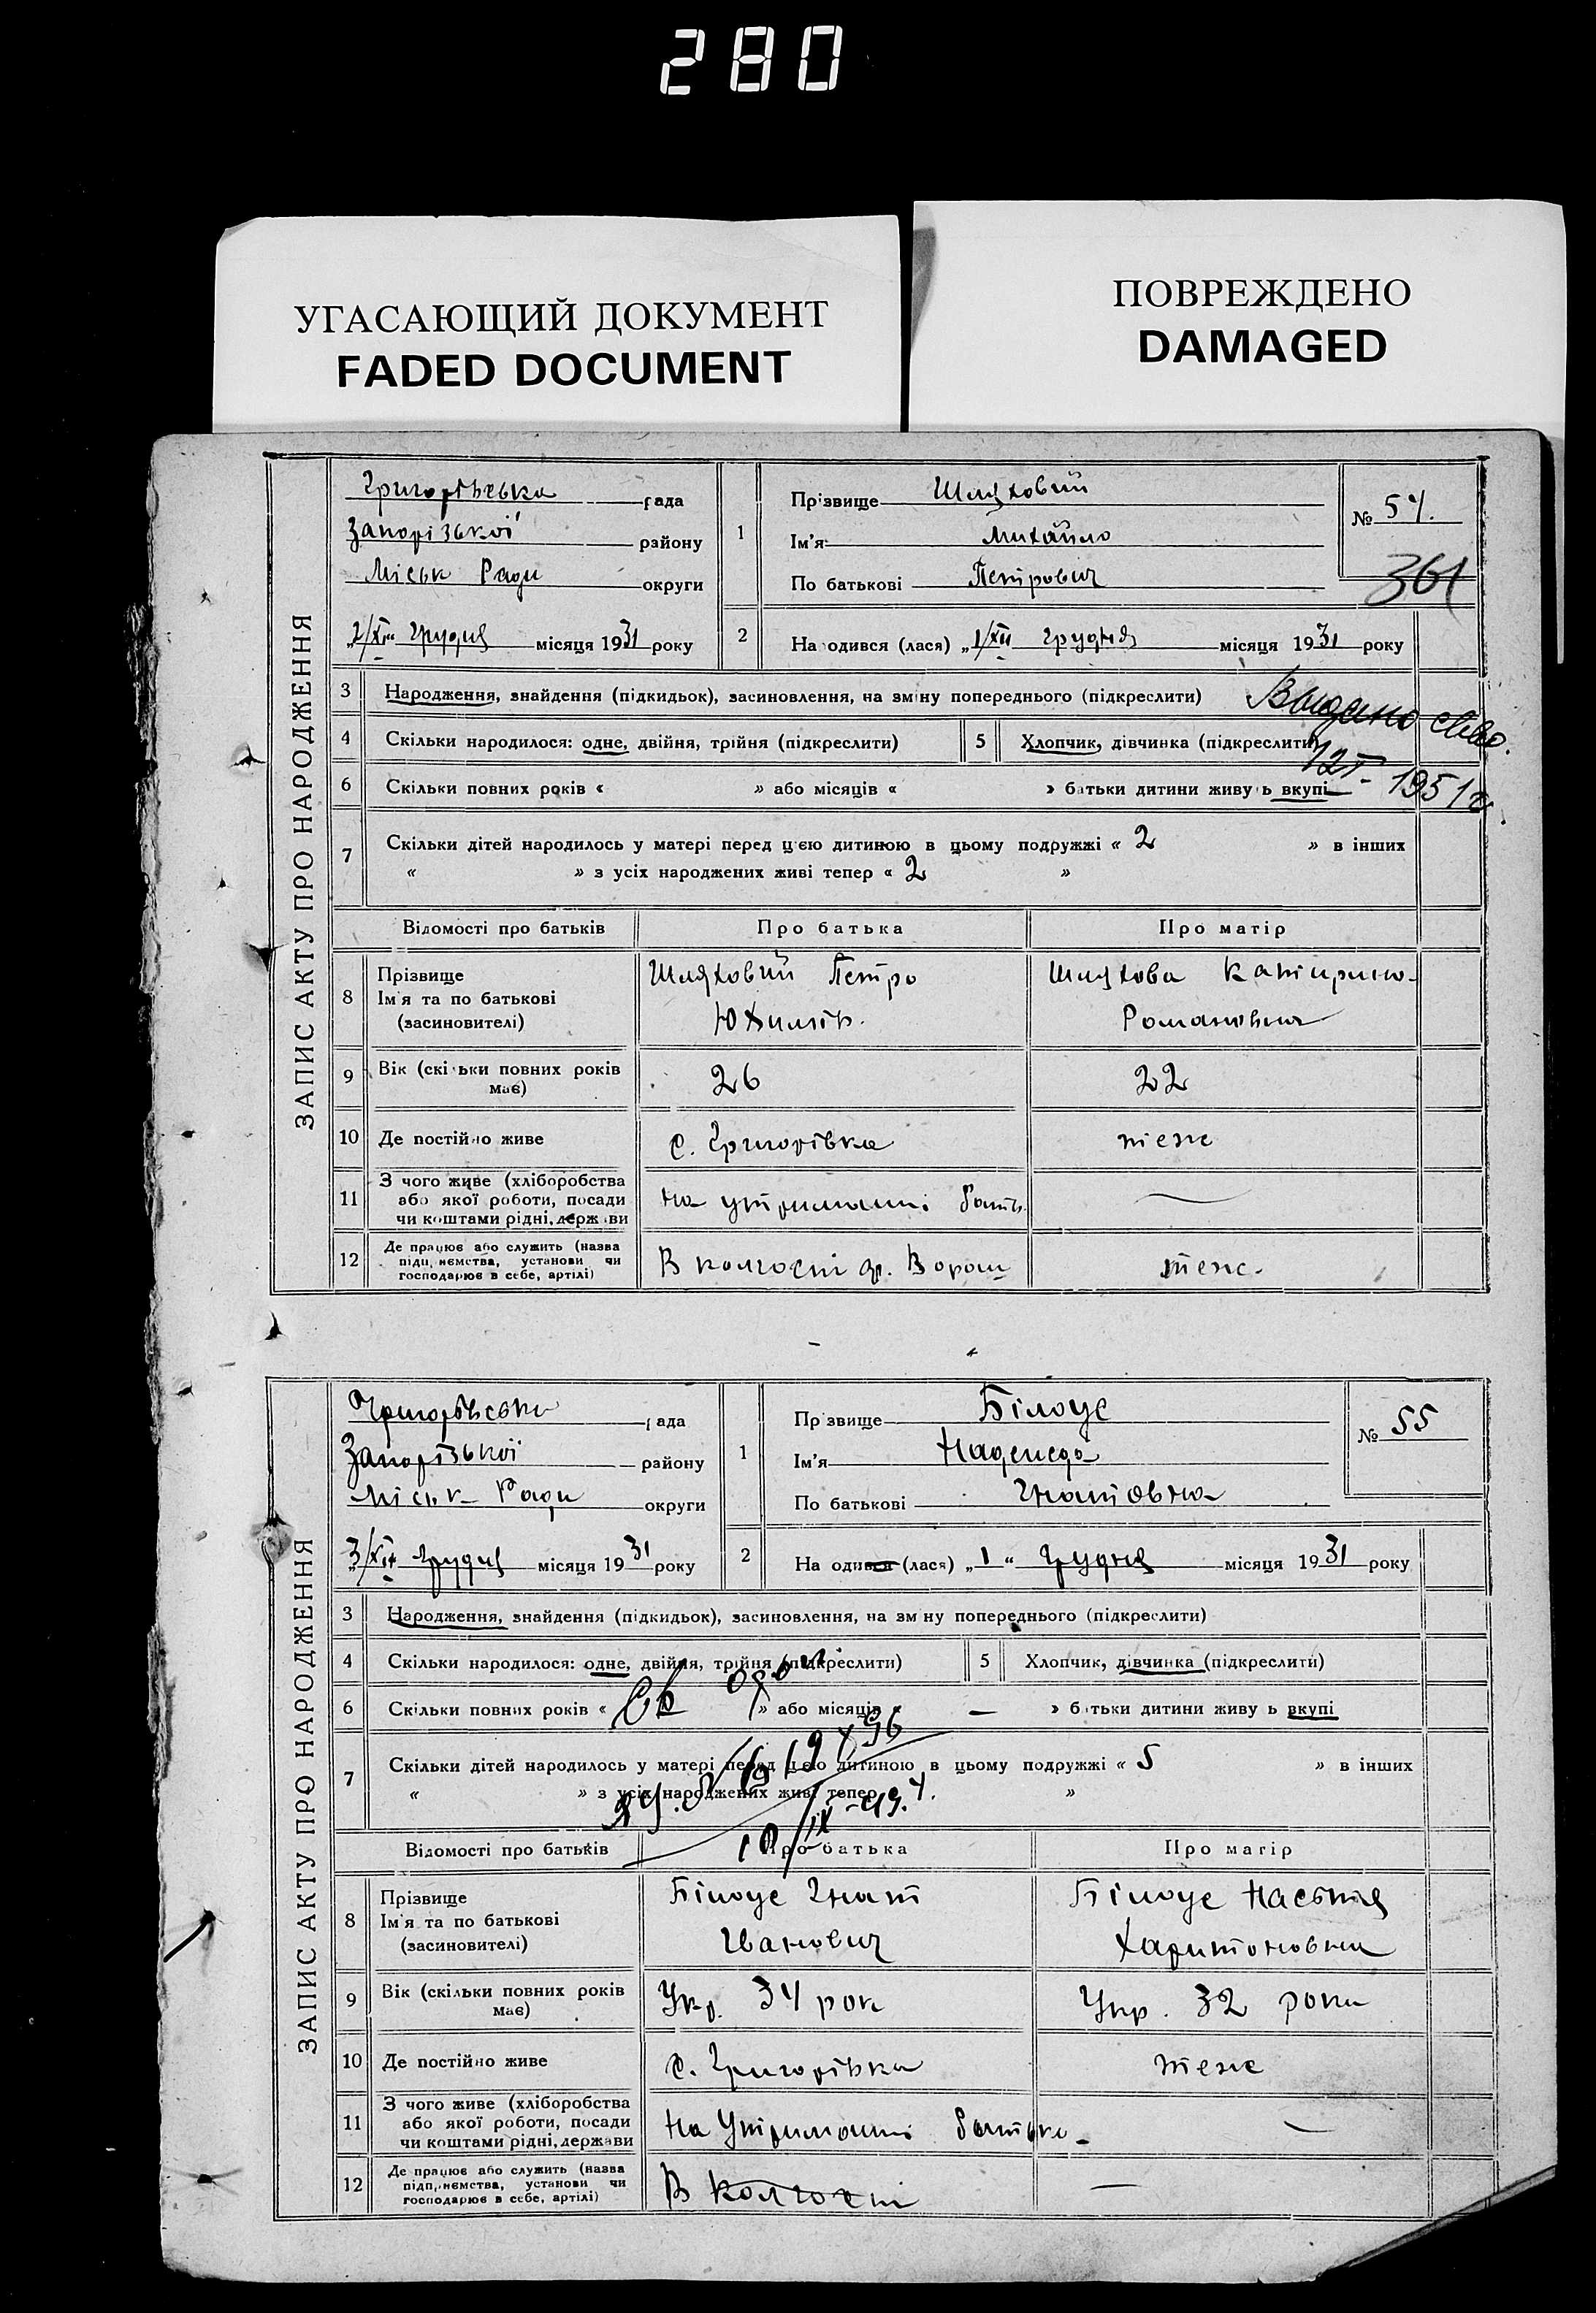 280
УГАСАЮЩИЙ ДОКУМЕНТ
FADED DOCUMENT
ПОВРЕЖДЕНО
DAMAGED
ЗАПИС АКТУ ПРО НАРОДЖЕННЯ
Григорівська рада
Запорізької району
Міськ Ради округи
„2/XII грудня місяця 1931 року
1 Прізвище Шляховий
Ім'я Михайло
По батькові Петрович
№ 54.
361
2 Народився (лася) „1/XII грудня місяця 1931 року
3 Народження, знайдення (підкидьок), засиновлення, на зміну попереднього (підкреслити)
Выдано
4 Скільки народилося: одне, двійня, трійня (підкреслити)
5 Хлопчик, дівчинка (підкреслити)
6 Скільки повних років « » або місяців « » батьки дитини живуть вкупі
1951 г.
7 Скільки дітей народилось у матері перед цією дитиною в цьому подружжі « 2 » в інших
« » з усіх народжених живі тепер « 2 »
Відомості про батьків Про батька Про матір
8 Прізвище
Ім'я та по батькові
(засиновителі)
Шляховий Петро
Юхимів.
Шляхова Катирина
Романівна
9 Вік (скільки повних років має) 26 22
10 Де постійно живе с. Григорівка теж
11 З чого живе (хліборобства
або якої роботи, посади
чи коштами рідні, держави
на утриманні батьк. —
12 Де працює або служить (назва
підприємства, установи чи
господарює в себе, артілі)
В колгоспі др. Ворош теж.
ЗАПИС АКТУ ПРО НАРОДЖЕННЯ
Григорівська рада
Запорізької району
Міськ Ради округи
„3/XII грудня місяця 1931 року
1 Прізвище Білоус
Ім'я Надежда
По батькові Гнатовна
№ 55
2 Народився (лася) „1“ грудня місяця 1931 року
3 Народження, знайдення (підкидьок), засиновлення, на зміну попереднього (підкреслити)
4 Скільки народилося: одне, двійня, трійня (підкреслити)
5 Хлопчик, дівчинка (підкреслити)
6 Скільки повних років « » або місяців « — » батьки дитини живуть вкупі
7 Скільки дітей народилось у матері перед цією дитиною в цьому подружжі « 5 » в інших
« » з усіх народжених живі тепер »
Відомості про батьків Про батька Про матір
8 Прізвище
Ім'я та по батькові
(засиновителі)
Білоус Гнат
Іванович
Білоус Настя
Харитоновна
9 Вік (скільки повних років має) Укр. 34 рок Укр. 32 роки
10 Де постійно живе с. Григорівка теж
11 З чого живе (хліборобства
або якої роботи, посади
чи коштами рідні, держави
на утриманні батька —
12 Де працює або служить (назва
підприємства, установи чи
господарює в себе, артілі)
В колгоспі —